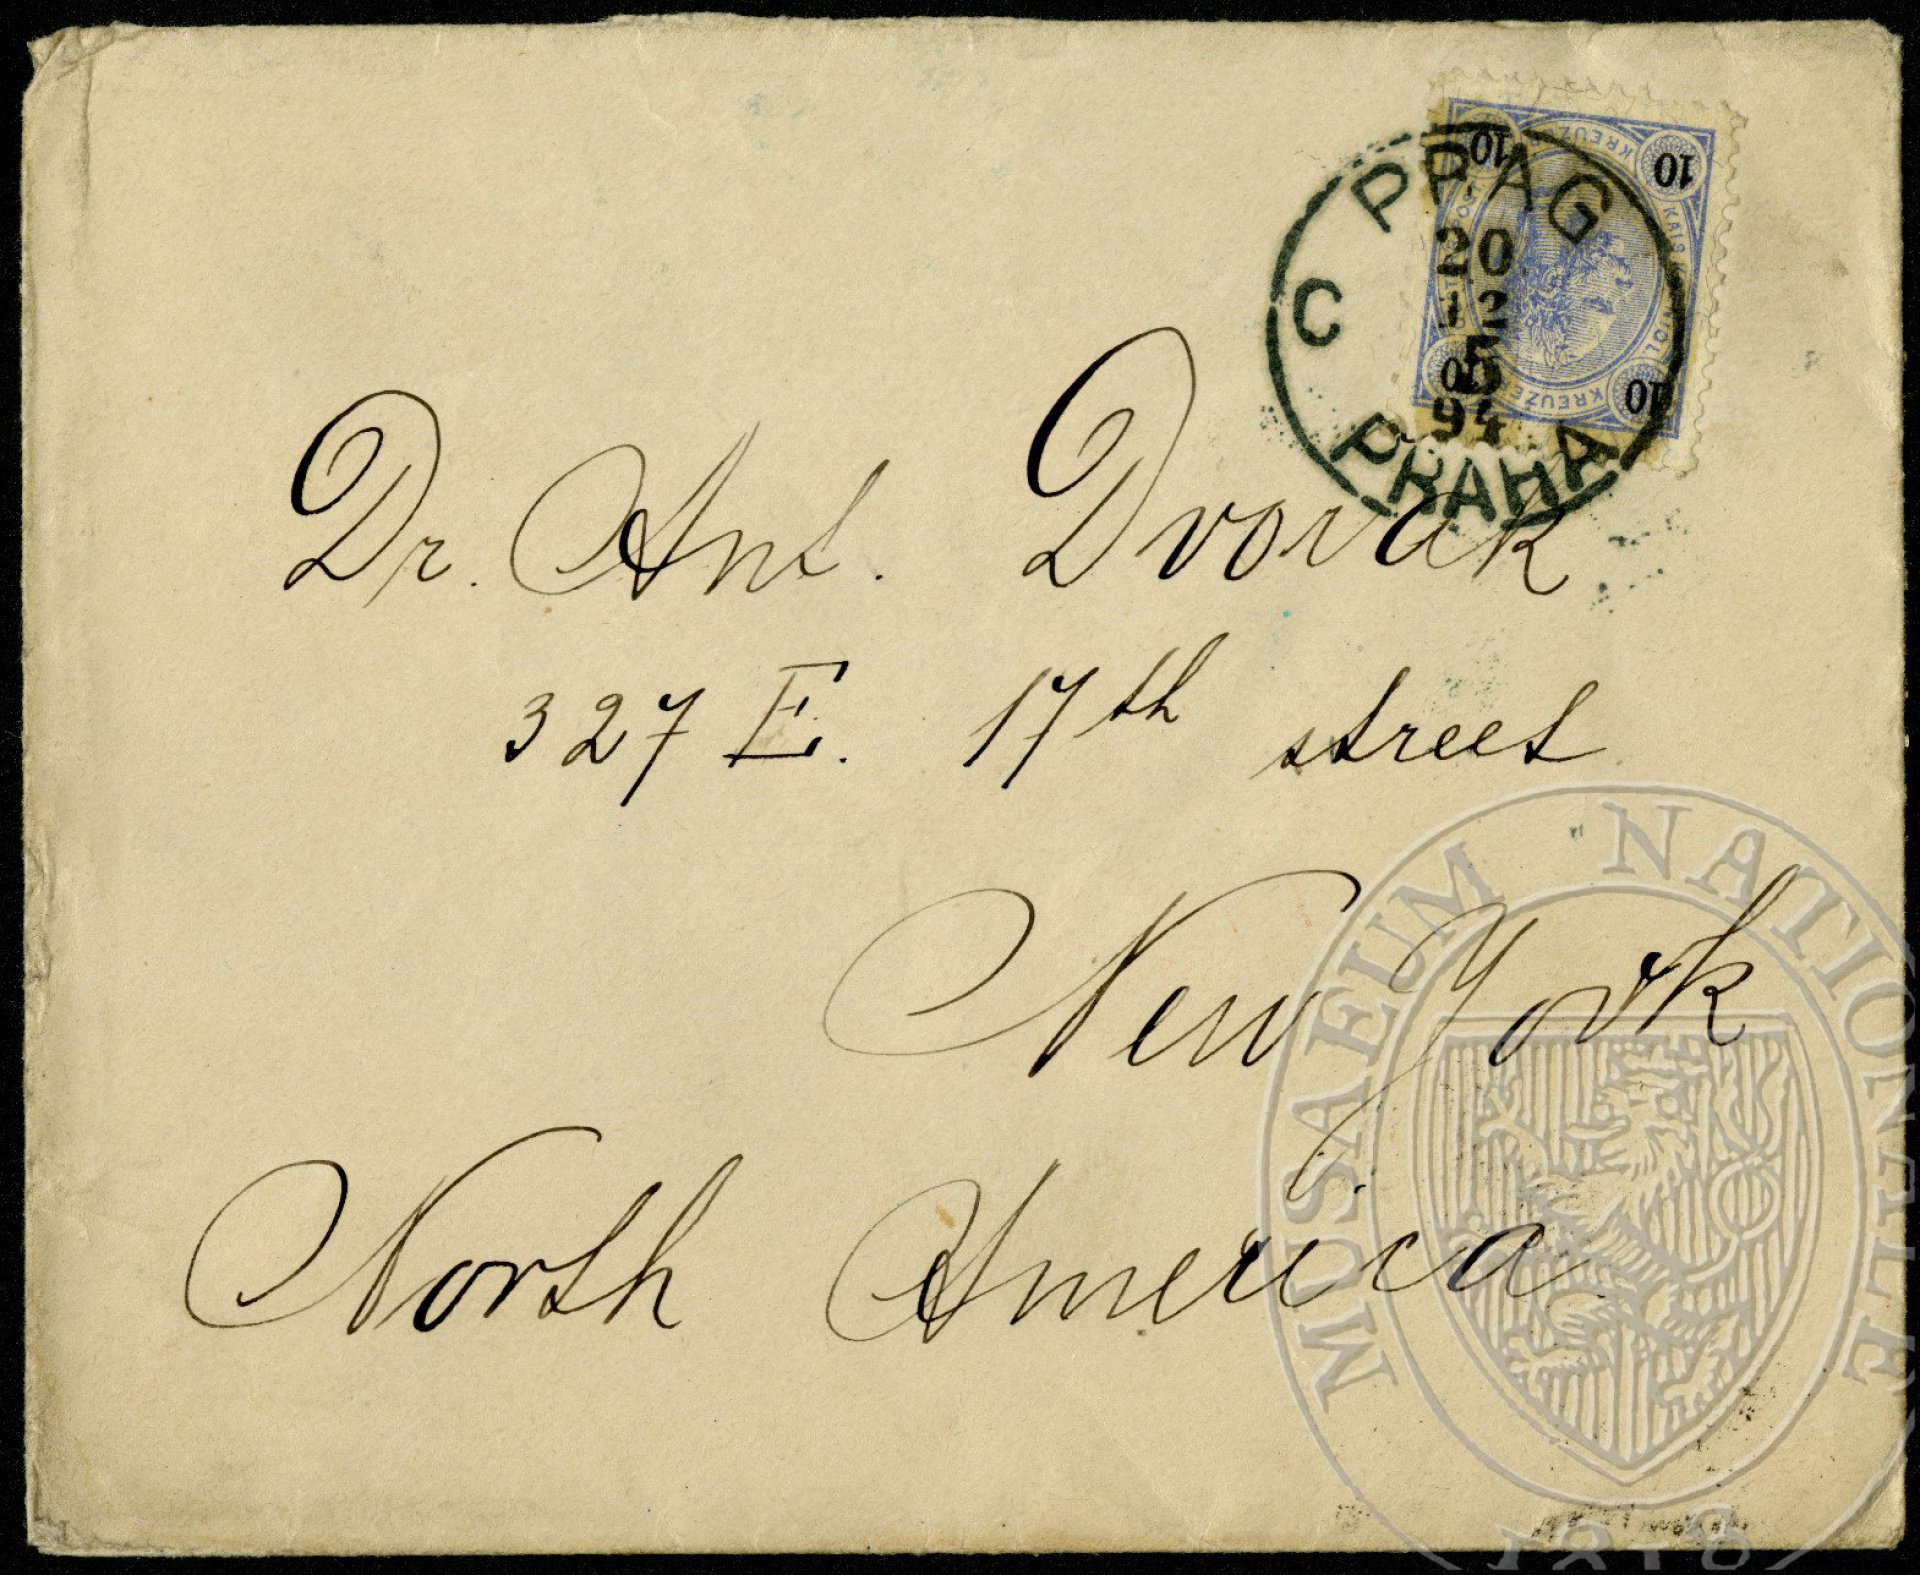 PRAG
C
20
12
5
94
PRAHA
10
10
10
10
KREUZER
KREUZER
Dr. Ant. Dvorak
327 E. 17th street
New York
North America
MUSAEUM NATIONALE
1818